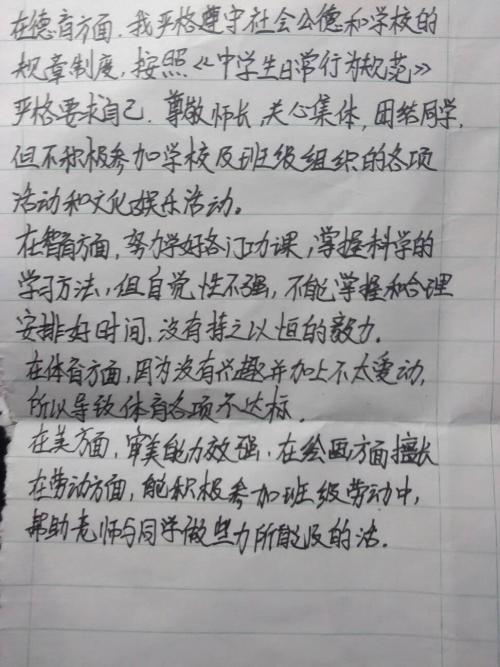 在德育方面，我严格遵守社会公德和学校的
规章制度，按照《中学生日常行为规范》
严格要求自己．尊敬师长，关心集体，团结同学，
但不积极参加学校及班级组织的各项
活动和文化娱乐活动。
在智育方面，努力学好各门功课，掌握科学的
学习方法，但自觉性不强，不能掌握和合理
安排好时间，没有持之以恒的毅力．
在体育方面，因为没有兴趣并加上不太爱动，
所以导致体育各项不达标．
在美方面，审美能力较强，在绘画方面擅长
在劳动方面，能积极参加班级劳动中，
帮助老师与同学做些力所能及的活．